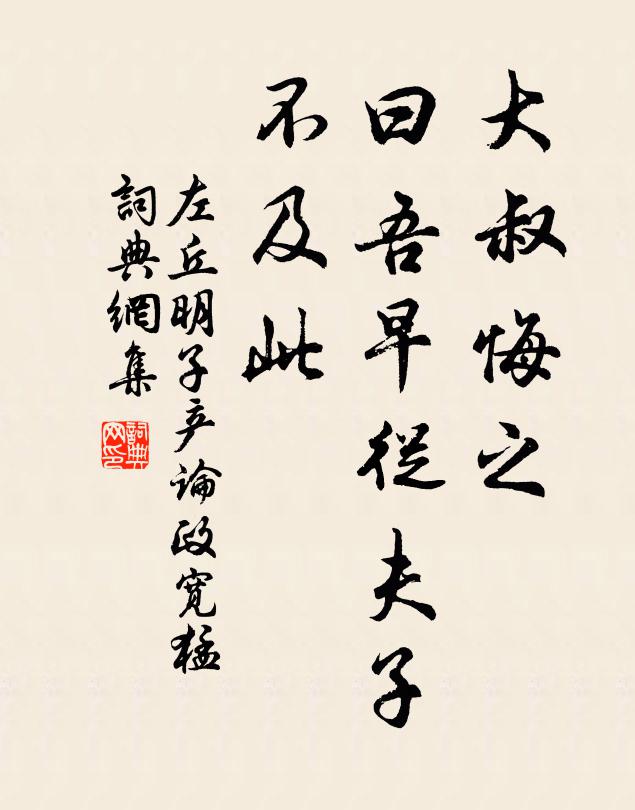 大叔悔之
曰吾早從夫子
不及此
左丘明子产論政寬猛
詞典網集
詞典
网印